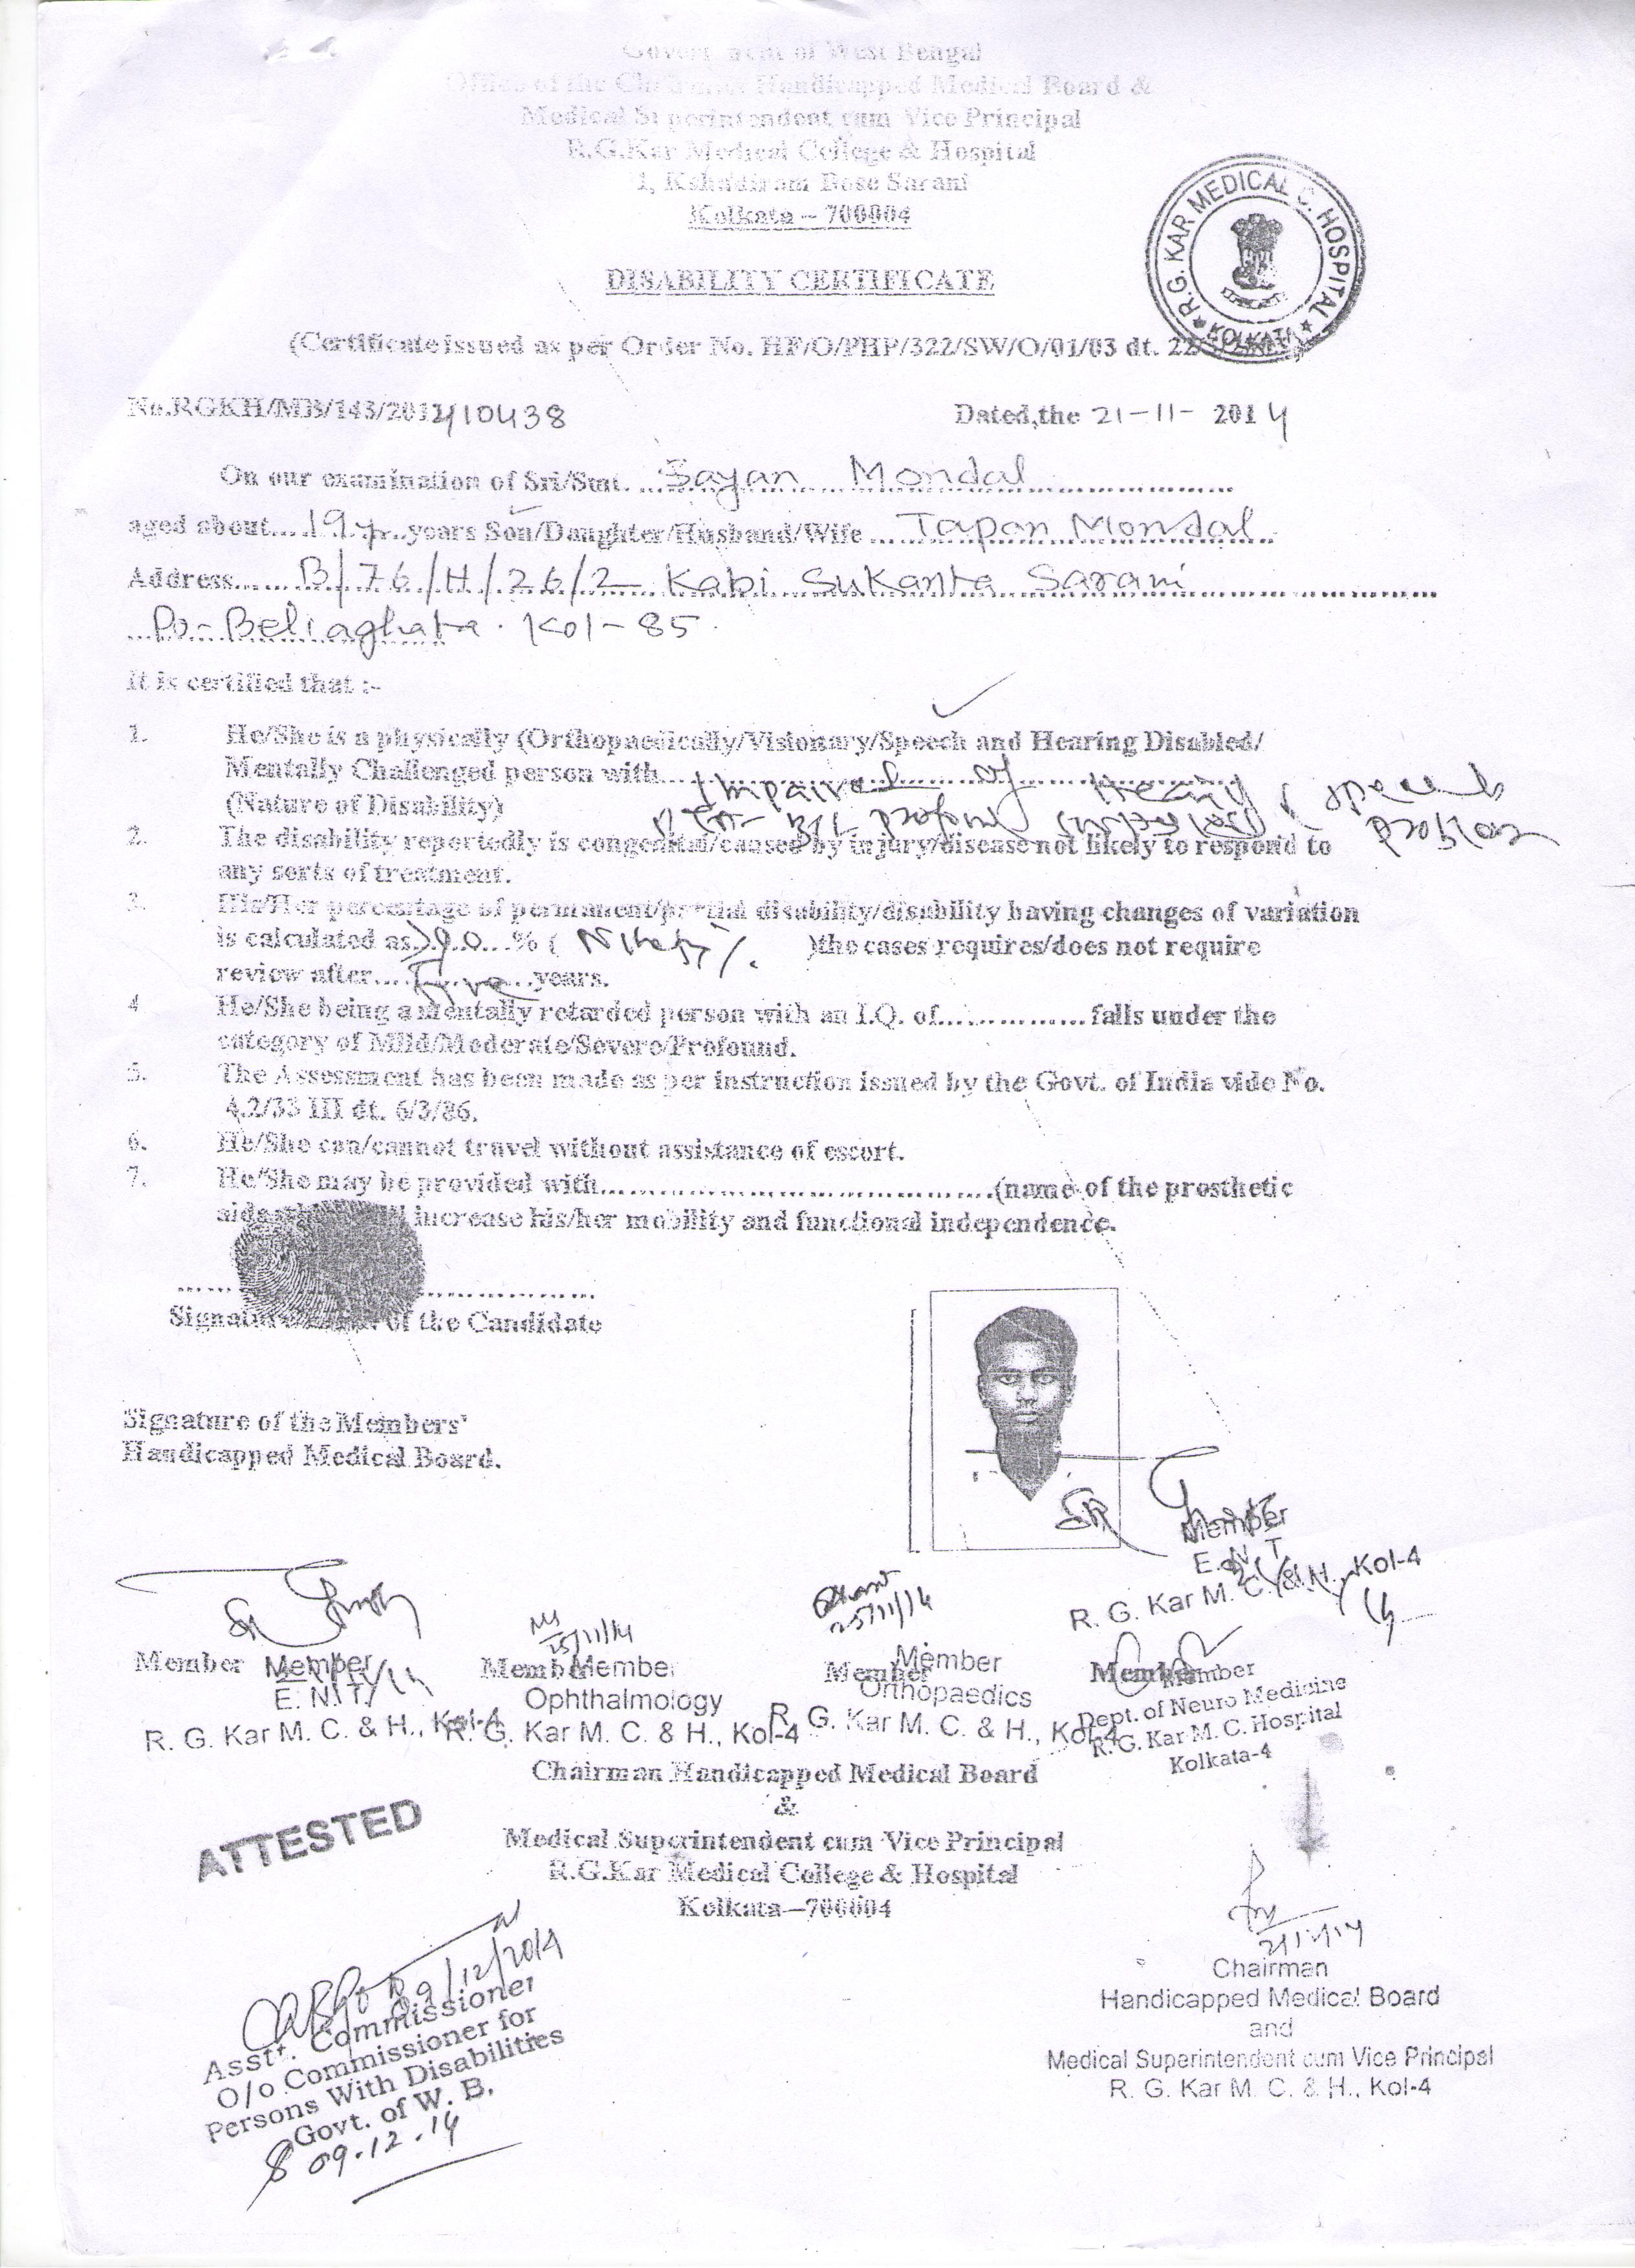 Government of West Bengal
Office of the Chairman Handicapped Medical Board &
Medical Superintendent cum Vice Principal
R.G.Kar Medical College & Hospital
1, Kshudiram Bose Sarani
Kolkata – 700004
R.G. KAR MEDICAL C. HOSPITAL
KOLKATA
DISABILITY CERTIFICATE
(Certificate issued as per Order No. HF/O/PHP/322/SW/O/01/03 dt. 22
No.RGKH/MB/143/2014/10438
Dated,the 21-11- 2014
On our examination of Sri/Smt. Sayan Mondal
aged about 19 years Son/Daughter/Husband/Wife Tapan Mondal
Address B/76/H/26/2 Kabi Sukanta Sarani
Po- Beliaghata. Kol-85.
It is certified that :-
1. He/She is a physically (Orthopaedically/Visionary/Speech and Hearing Disabled/
Mentally Challenged person with Impaired of Hearing & speech problem
(Nature of Disability)
2. The disability reportedly is congenital/caused by injury/disease not likely to respond to
any sorts of treatment.
3. His/Her percentage of permanent/partial disability/disability having changes of variation
is calculated as >90 % ( Ninety )the cases requires/does not require
review after Five years.
4 He/She being a mentally retarded person with an I.Q. of............... falls under the
category of Mild/Moderate/Severe/Profound.
5. The Assessment has been made as per instruction issued by the Govt. of India vide No.
4.2/33 III dt. 6/3/86.
6. He/She can/cannot travel without assistance of escort.
7. He/She may be provided with.......................................(name of the prosthetic
aids increase his/her mobility and functional independence.
Signature of the Candidate
Signature of the Members'
Handicapped Medical Board.
Member
E. N. T.
R. G. Kar M. C. & H., Kol-4
Member Member
E. N. T.
R. G. Kar M. C. & H., Kol-4
25/11/14
Member Member
Ophthalmology
R. G. Kar M. C. & H., Kol-4
25/11/14
Member Member
Orthopaedics
R. G. Kar M. C. & H., Kol-4
Member Member
Dept. of Neuro Medicine
R. G. Kar M. C. Hospital
Kolkata-4
Chairman Handicapped Medical Board
&
Medical Superintendent cum Vice Principal
R.G.Kar Medical College & Hospital
Kolkata—700004
ATTESTED
09/12/2014
Asstt. Commissioner
O/o Commissioner for
Persons With Disabilities
Govt. of W. B.
09.12.14
Chairman
Handicapped Medical Board
and
Medical Superintendent cum Vice Principal
R. G. Kar M. C. & H., Kol-4